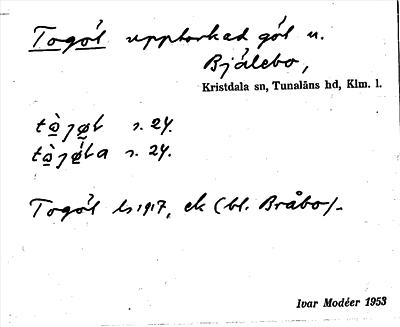 Togöl upptorkad göl u.
Bjälebo,
Kristdala sn, Tunaläns hd, Klm. l.
s. 24.
s. 24.
Togöl ls 1917, ek (bl. Bråbo/-
Ivar Modéer 1953